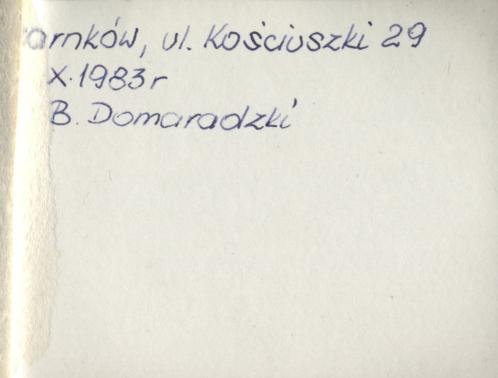 zarnków, ul. Kościuszki 29
X.1983r
B. Domaradzki